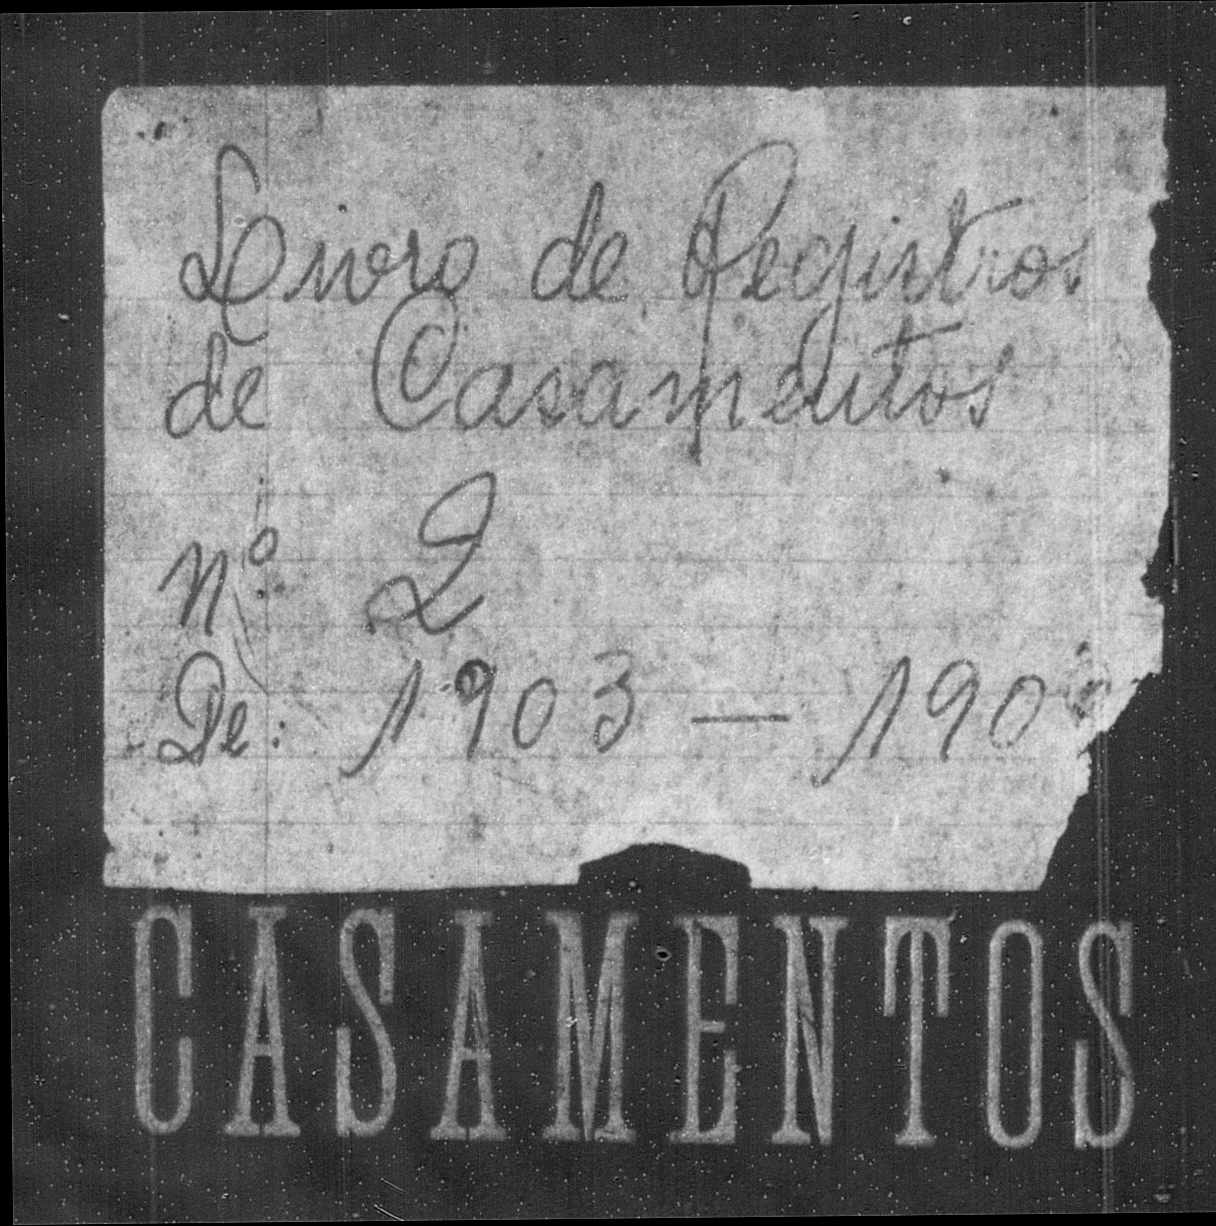 Livro de Registros
de Casamentos
nº 2
De: 1903 —
CASAMENTOS